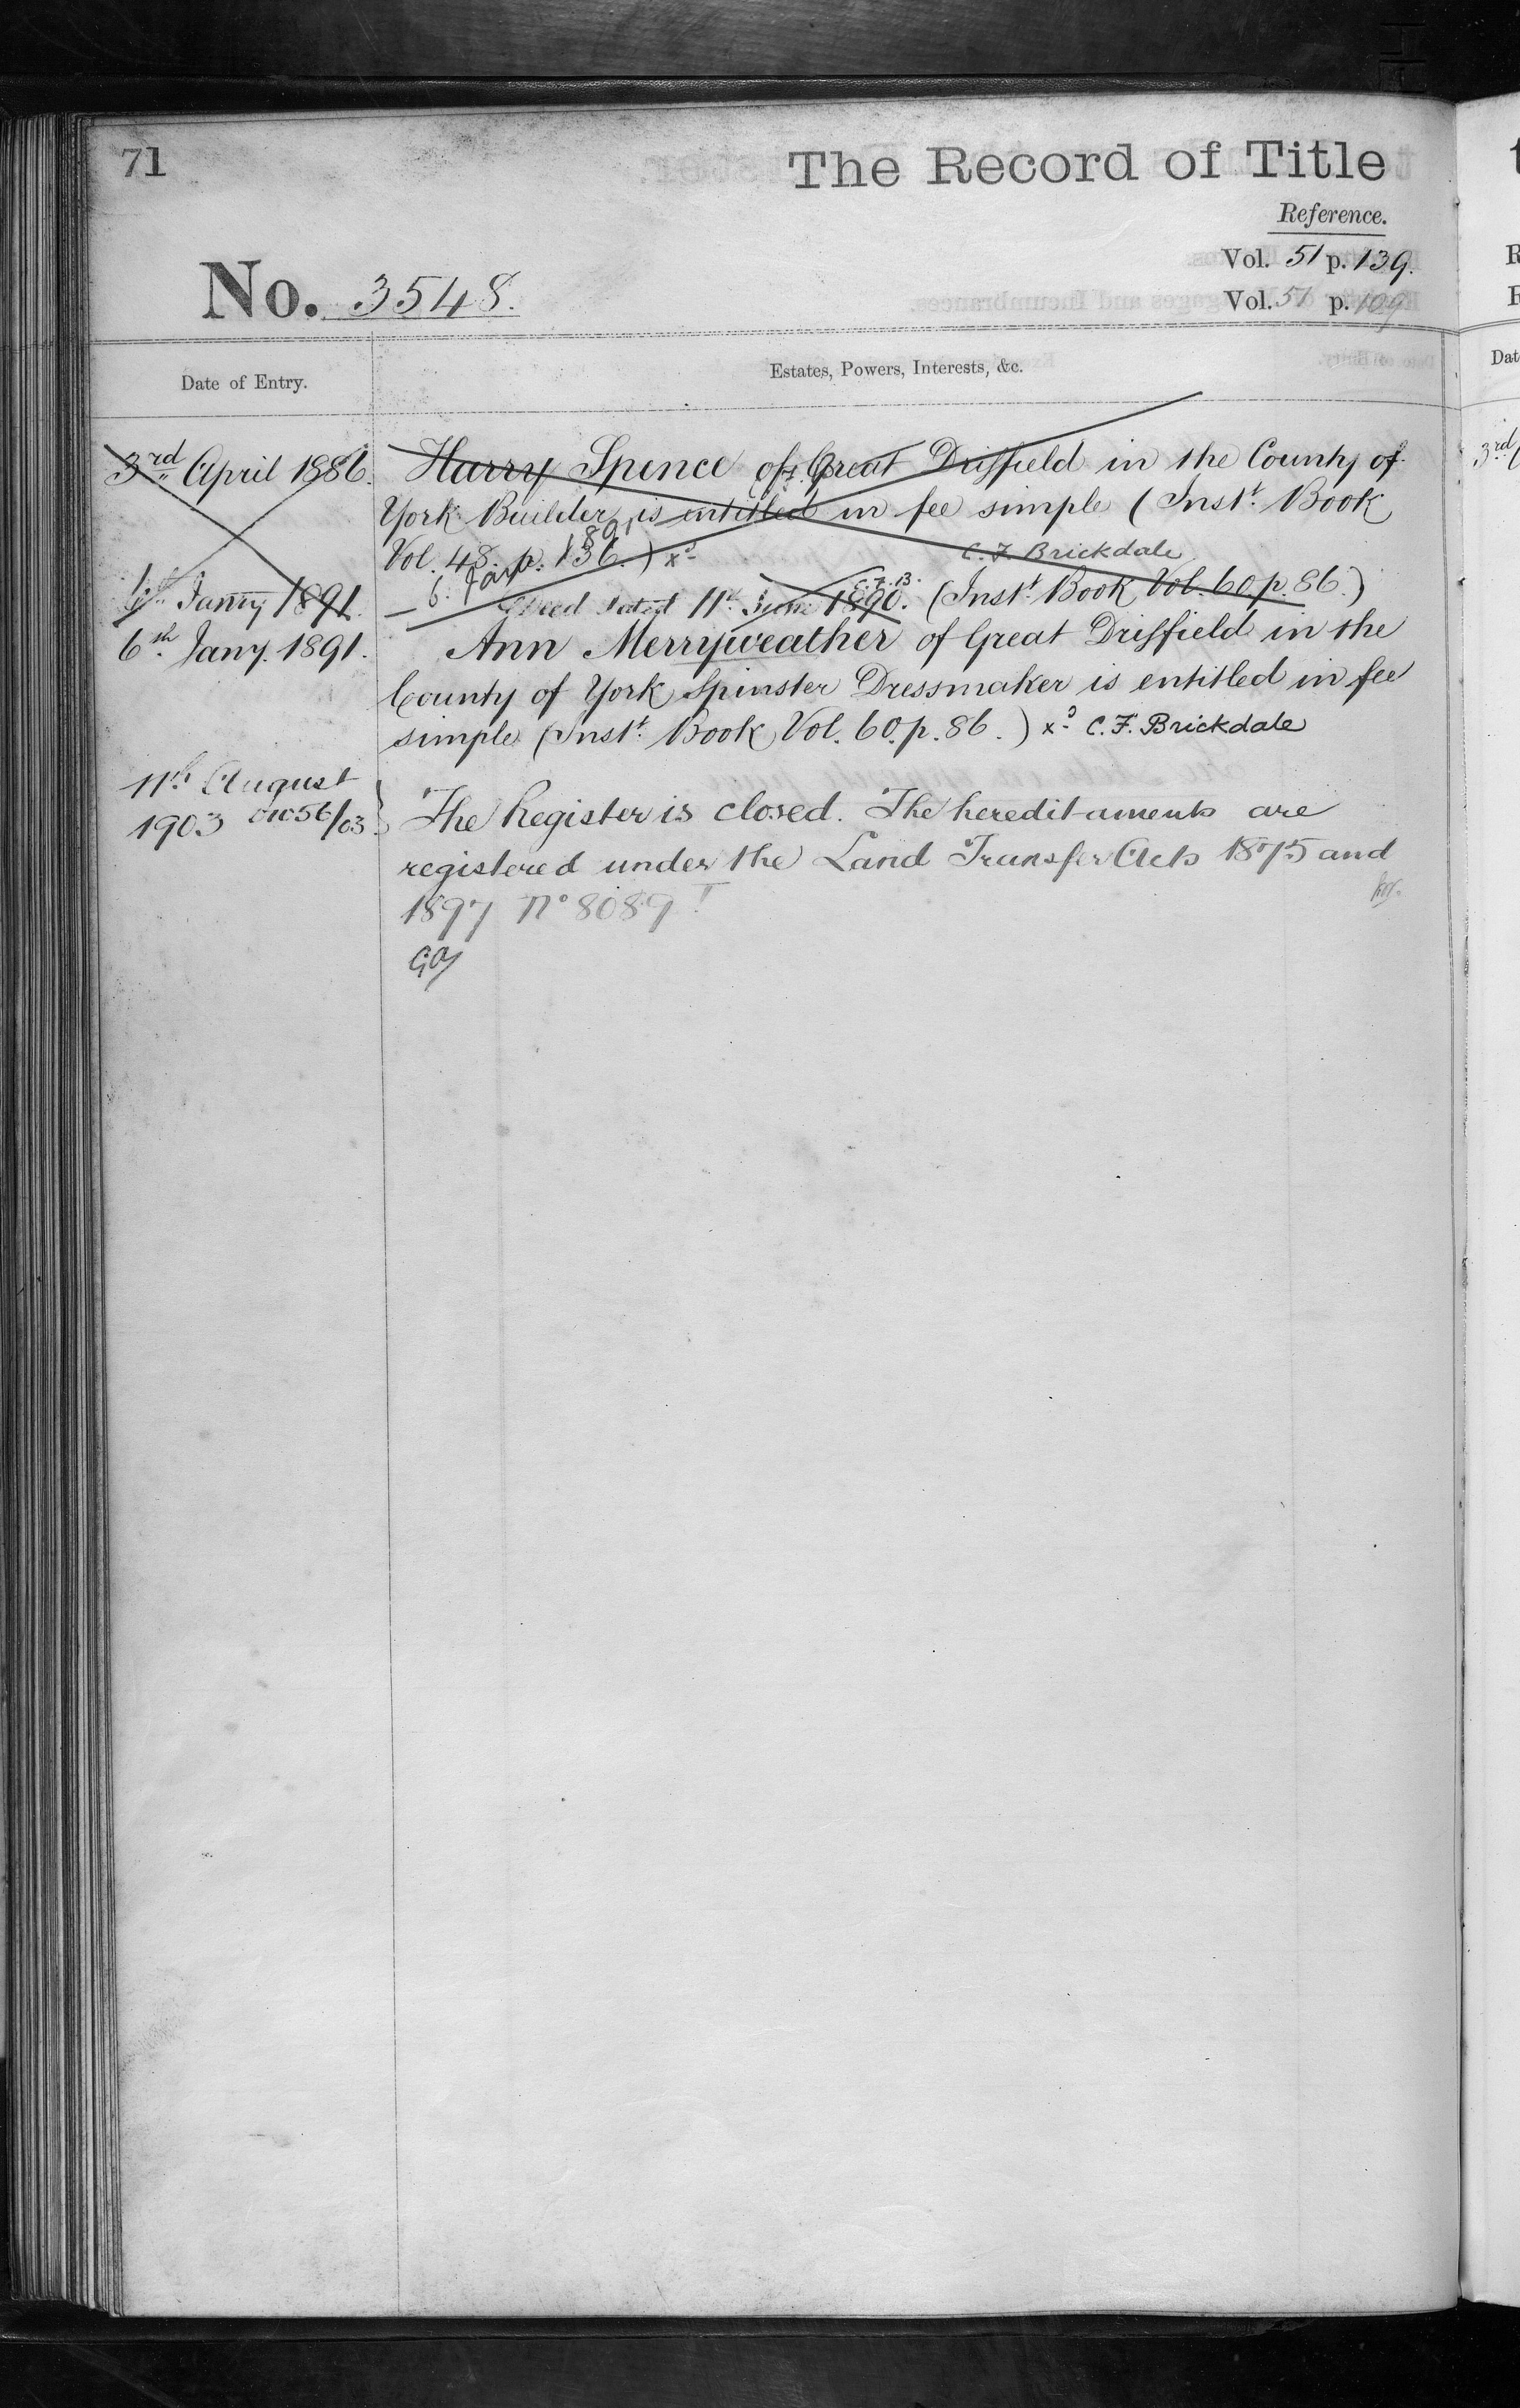 71
The Record of Title
Reference.
Vol. 51 p. 139.
Vol. 51 p. 109
No. 3548.
Date of Entry.
Estates, Powers, Interests, &c.
3rd April 1886. Harry Spence of Great Driffield in the County of
York Builder is entitled in fee simple (Inst. Book
Vol. 48. p. 136.) xd C. F. Brickdale
6. Jan 1891
Janny 1891. Deed dated 11th June 1890. C.F.B. (Inst. Book Vol. 60. p. 86.)
6th Jany. 1891. Ann Merryweather of Great Driffield in the
County of York Spinster Dressmaker is entitled in fee
simple (Inst. Book Vol. 60. p. 86.) xd C. F. Brickdale
11th August
1903 The Register is closed. The hereditaments are
registered under the Land Transfer Acts 1875 and
1897 No 8089
Dat
3rd